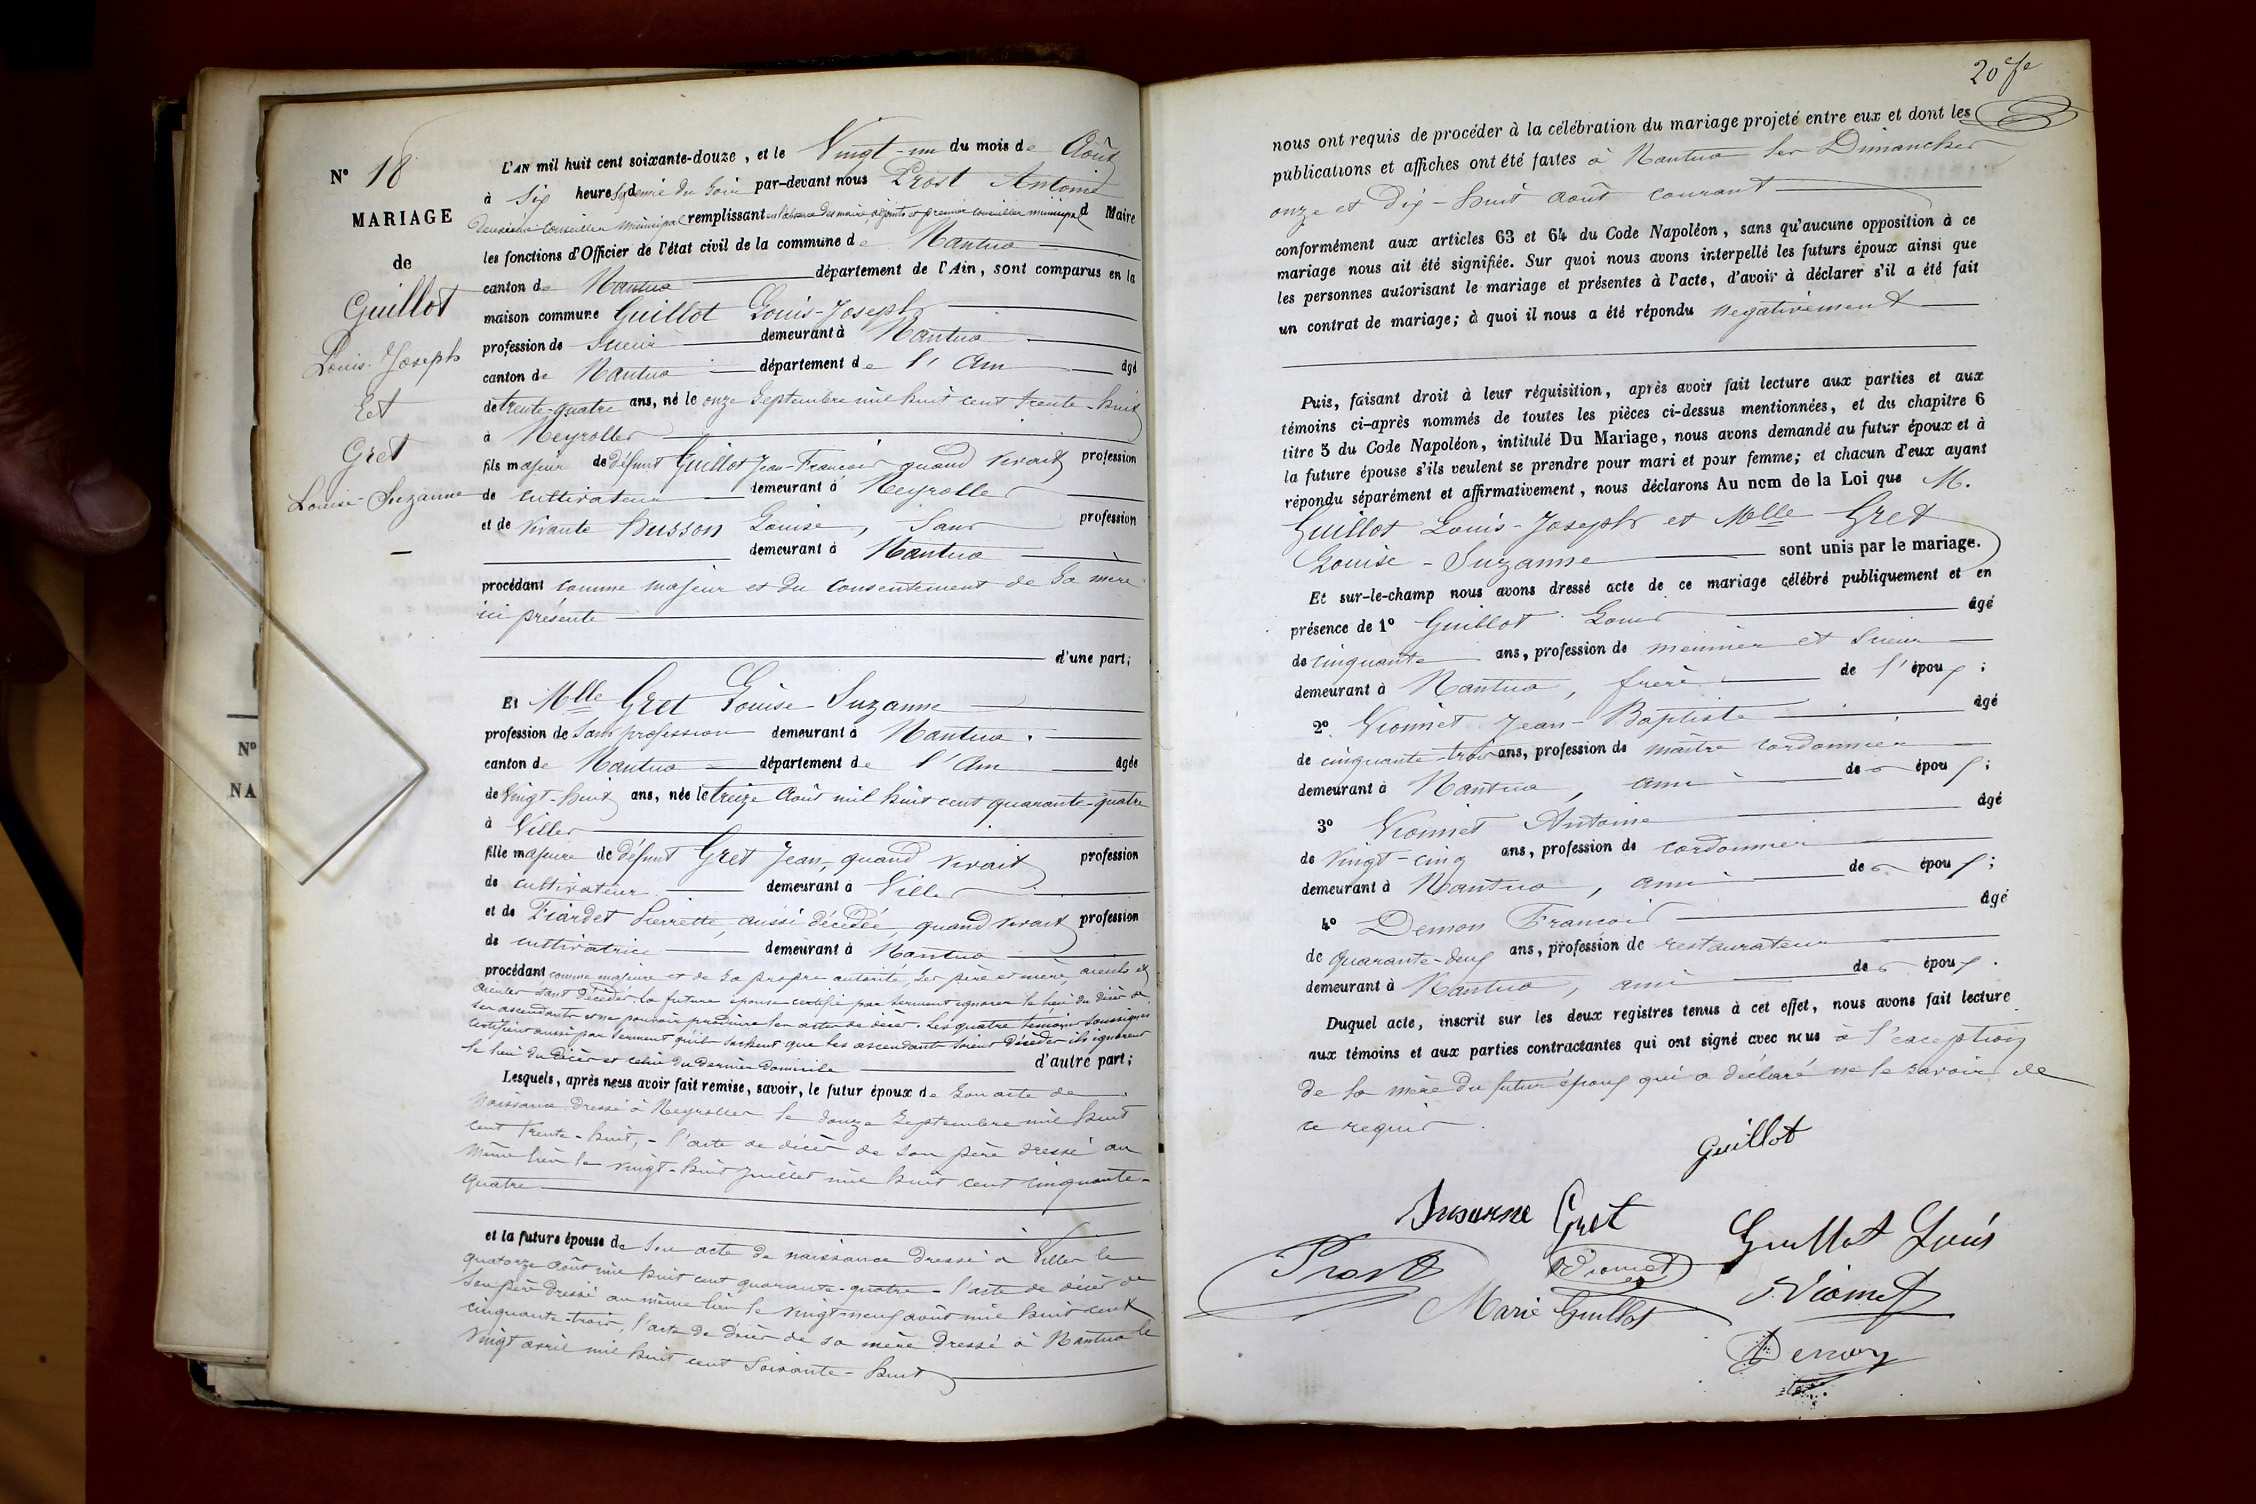 N° 18
MARIAGE
de
Guillot
Louis-Joseph
Et
Gret
Louise-Suzanne
L'AN mil huit cent soixante-douze, et le Vingt-un du mois de Août
à Six heures et demie du Soir par-devant nous Prost Antoine
deuxième Conseiller municipal remplissant en l'absence des maire, adjoints et premier conseiller municipal d Maire
les fonctions d'Officier de l'état civil de la commune de Nantua
canton de Nantua département de l'Ain, sont comparus en la
maison commune Guillot Louis-Joseph
profession de Scieur demeurant à Nantua
canton de Nantua département de l'Ain âgé
de trente-quatre ans, né le onze Septembre mil huit cent trente-huit
à Neyrolles
fils majeur de défunt Guillot Jean-François quand vivait profession
de cultivateur demeurant à Neyrolles
et de vivante Husson Louise, Sans profession
demeurant à Nantua
procédant comme majeur et du consentement de Sa mère
ici présente
d'une part;
Et Mlle Gret Louise-Suzanne
profession de Sans profession demeurant à Nantua
canton de Nantua département de l'Ain âgée
de Vingt-huit ans, née le treize Août mil huit cent quarante-quatre
à Villes
fille majeure de défunt Gret Jean, quand vivait profession
de cultivateur demeurant à Villes
et de Piardet Pierrette, aussi décédée, quand vivait profession
de cultivatrice demeurant à Nantua
procédant comme majeure et de Sa propre autorité, Ses père et mère, aïeuls et
aïeules étant décédés, la future épouse certifie par Serment ignorer le lieu du décès de
ses ascendants et ne pouvoir produire les actes de décès. Les quatre témoins Soussignés
certifient aussi par Serment qu'ils Sachent que les ascendants Soient décédés ils ignorent
le lieu du décès et celui du dernier domicile d'autre part;
Lesquels, après nous avoir fait remise, savoir, le futur époux de Son acte de
naissance dressé à Neyrolles le douze Septembre mil huit
cent trente-huit, - l'acte de décès de Son père dressé au
même lieu le vingt-huit Juillet mil huit cent cinquante-
quatre
et la future épouse de Son acte de naissance dressé à Villes le
quatorze Août mil huit cent quarante-quatre - l'acte de décès de
Son père dressé au même lieu le vingt-neuf août mil huit cent
cinquante-trois, l'acte de décès de sa mère dressé à Nantua le
Vingt avril mil huit cent Soixante-huit
N°
NA
20e fe
nous ont requis de procéder à la célébration du mariage projeté entre eux et dont les
publications et affiches ont été faites à Nantua les Dimanches
onze et Dix-huit août courant
conformément aux articles 63 et 64 du Code Napoléon, sans qu'aucune opposition à ce
mariage nous ait été signifiée. Sur quoi nous avons interpellé les futurs époux ainsi que
les personnes autorisant le mariage et présentes à l'acte, d'avoir à déclarer s'il a été fait
un contrat de mariage; à quoi il nous a été répondu negativement
Puis, faisant droit à leur réquisition, après avoir fait lecture aux parties et aux
témoins ci-après nommés de toutes les pièces ci-dessus mentionnées, et du chapitre 6
titre 5 du Code Napoléon, intitulé Du Mariage, nous avons demandé au futur époux et à
la future épouse s'ils veulent se prendre pour mari et pour femme; et chacun d'eux ayant
répondu séparément et affirmativement, nous déclarons Au nom de la Loi que M.
Guillot Louis-Joseph et Mlle Gret
Louise-Suzanne sont unis par le mariage.
Et sur-le-champ nous avons dressé acte de ce mariage célébré publiquement et en
présence de 1° Guillot Louis âgé
de cinquante ans, profession de meunier et Scieur
demeurant à Nantua, frère de l'époux;
2° Vionnet Jean-Baptiste âgé
de cinquante-trois ans, profession de maître cordonnier
demeurant à Nantua, ami des époux;
3° Vionnet Antoine âgé
de vingt-cinq ans, profession de cordonnier
demeurant à Nantua, ami des époux;
4° Demon François âgé
de quarante-deux ans, profession de restaurateur
demeurant à Nantua, ami des époux.
Duquel acte, inscrit sur les deux registres tenus à cet effet, nous avons fait lecture
aux témoins et aux parties contractantes qui ont signé avec nous à l'exception
de la mère du futur époux qui a déclaré ne le savoir de
ce requis
Guillot
Susanne Gret
Guillot Louis
Prost
Vionnet
Vionnet
Marie Guillot